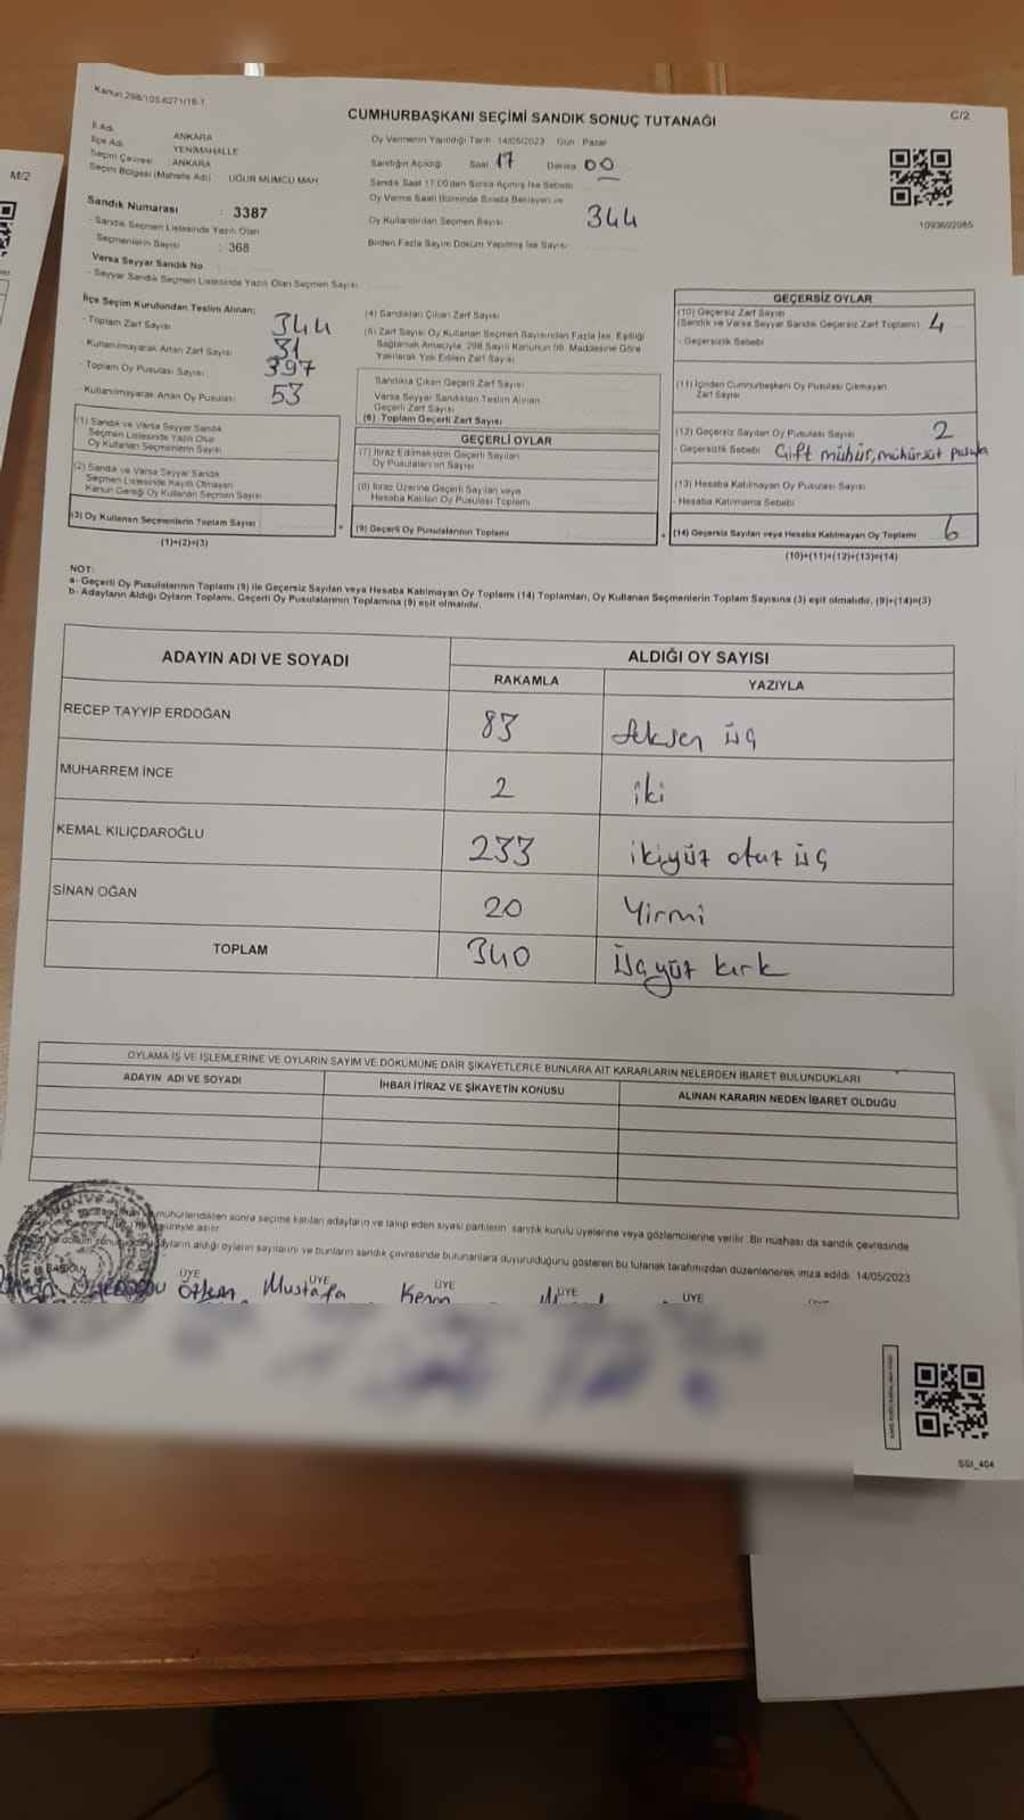 Kanun 298/105.6271/18-1
C/2
CUMHURBAŞKANI SEÇİMİ SANDIK SONUÇ TUTANAĞI
M/2
İl Adı ANKARA
İlçe Adı YENİMAHALLE
Seçim Çevresi : ANKARA
Seçim Bölgesi (Mahalle Adı) UĞUR MUMCU MAH
Sandık Numarası : 3387
- Sandık Seçmen Listesinde Yazılı Olan
Seçmenlerin Sayısı : 368
Varsa Seyyar Sandık No
- Seyyar Sandık Seçmen Listesinde Yazılı Olan Seçmen Sayısı
Oy Vermenin Yapıldığı Tarih 14/05/2023 Gün Pazar
Sandığın Açıldığı Saat 17 Dakika 00
Sandık Saat 17.00'den Sonra Açılmış İse Sebebi
Oy Verme Saati Bitiminde Sırada Bekleyen ve
Oy Kullandırılan Seçmen Sayısı 344
Birden Fazla Sayım Döküm Yapılmış İse Sayısı
1093692985
İlçe Seçim Kurulundan Teslim Alınan;
- Toplam Zarf Sayısı 344
- Kullanılmayarak Artan Zarf Sayısı 31
- Toplam Oy Pusulası Sayısı 397
- Kullanılmayarak Artan Oy Pusulası 53
(1) Sandık ve Varsa Seyyar Sandık
Seçmen Listesinde Yazılı Olup
Oy Kullanan Seçmenlerin Sayısı
(2) Sandık ve Varsa Seyyar Sandık
Seçmen Listesinde Kayıtlı Olmayan
Kanun Gereği Oy Kullanan Seçmen Sayısı
(3) Oy Kullanan Seçmenlerin Toplam Sayısı
(1)+(2)=(3)
(4) Sandıktan Çıkan Zarf Sayısı
(5) Zarf Sayısı Oy Kullanan Seçmen Sayısından Fazla İse, Eşitliği
Sağlamak Amacıyla, 298 Sayılı Kanunun 98. Maddesine Göre
Yakılarak Yok Edilen Zarf Sayısı
Sandıkta Çıkan Geçerli Zarf Sayısı
Varsa Seyyar Sandıktan Teslim Alınan
Geçerli Zarf Sayısı
(6) Toplam Geçerli Zarf Sayısı
GEÇERLİ OYLAR
(7) İtiraz Edilmeksizin Geçerli Sayılan
Oy Pusulalarının Sayısı
(8) İtiraz Üzerine Geçerli Sayılan veya
Hesaba Katılan Oy Pusulası Toplamı
(9) Geçerli Oy Pusulalarının Toplamı
GEÇERSİZ OYLAR
(10) Geçersiz Zarf Sayısı
(Sandık ve Varsa Seyyar Sandık Geçersiz Zarf Toplamı) 4
- Geçersizlik Sebebi
(11) İçinden Cumhurbaşkanı Oy Pusulası Çıkmayan
Zarf Sayısı
(12) Geçersiz Sayılan Oy Pusulası Sayısı 2
- Geçersizlik Sebebi Çift mühür, mühürsüz pusula
(13) Hesaba Katılmayan Oy Pusulası Sayısı
- Hesaba Katılmama Sebebi
(14) Geçersiz Sayılan veya Hesaba Katılmayan Oy Toplamı 6
(10)+(11)+(12)+(13)=(14)
NOT:
a- Geçerli Oy Pusulalarının Toplamı (9) ile Geçersiz Sayılan veya Hesaba Katılmayan Oy Toplamı (14) Toplamları, Oy Kullanan Seçmenlerin Toplam Sayısına (3) eşit olmalıdır. (9)+(14)=(3)
b- Adayların Aldığı Oyların Toplamı, Geçerli Oy Pusulalarının Toplamına (9) eşit olmalıdır.
ADAYIN ADI VE SOYADI ALDIĞI OY SAYISI
RAKAMLA YAZIYLA
RECEP TAYYİP ERDOĞAN 83 seksen üç
MUHARREM İNCE 2 iki
KEMAL KILIÇDAROĞLU 233 ikiyüz otuz üç
SİNAN OĞAN 20 Yirmi
TOPLAM 340 Üçyüz kırk
OYLAMA İŞ VE İŞLEMLERİNE VE OYLARIN SAYIM VE DÖKÜMÜNE DAİR ŞİKAYETLERLE BUNLARA AİT KARARLARIN NELERDEN İBARET BULUNDUKLARI
ADAYIN ADI VE SOYADI İHBAR İTİRAZ VE ŞİKAYETİN KONUSU ALINAN KARARIN NEDEN İBARET OLDUĞU
mühürlendikten sonra seçime katılan adayların ve takip eden siyasi partilerin sandık kurulu üyelerine veya gözlemcilerine verilir. Bir nüshası da sandık çevresinde
asılır.
aldığı oyların sayılarını ve bunların sandık çevresinde bulunanlara duyurulduğunu gösteren bu tutanak tarafımızdan düzenlenerek imza edildi. 14/05/2023
BAŞKAN ÜYE ÜYE ÜYE ÜYE ÜYE
Özlem Mustafa Kerim
SSI_404